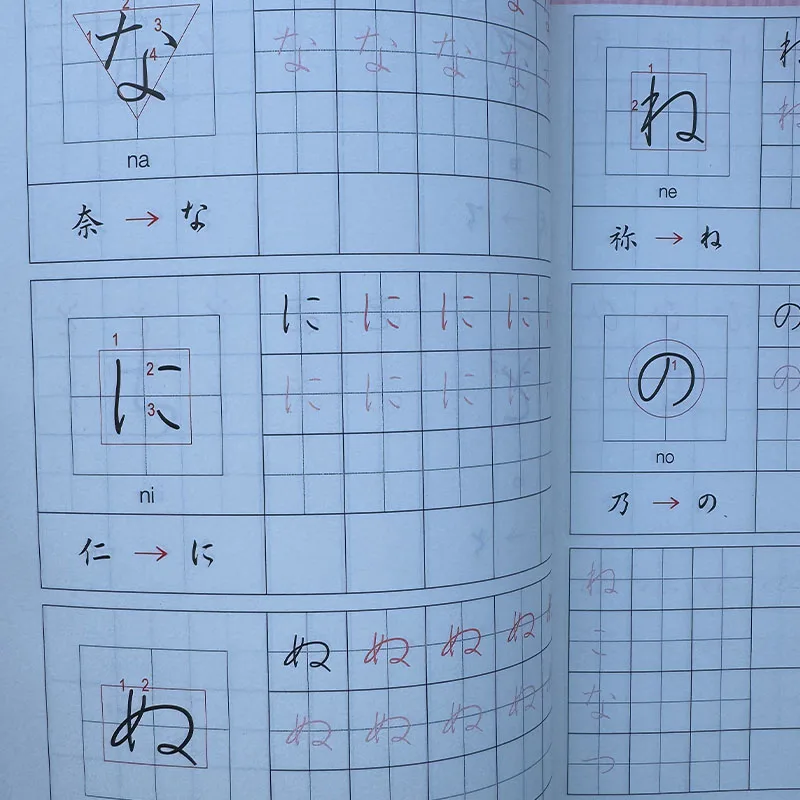 2
1 な 3
4
な な な な
na
奈 → な
に に に に
1
に 2
3
に に に に
ni
仁 → に
ぬ ぬ ぬ ぬ
1 2
ぬ
ぬ ぬ ぬ ぬ
1
2 ね
ne
祢 → ね
の
の 1
の
no
乃 → の
ね
こ
な
つ